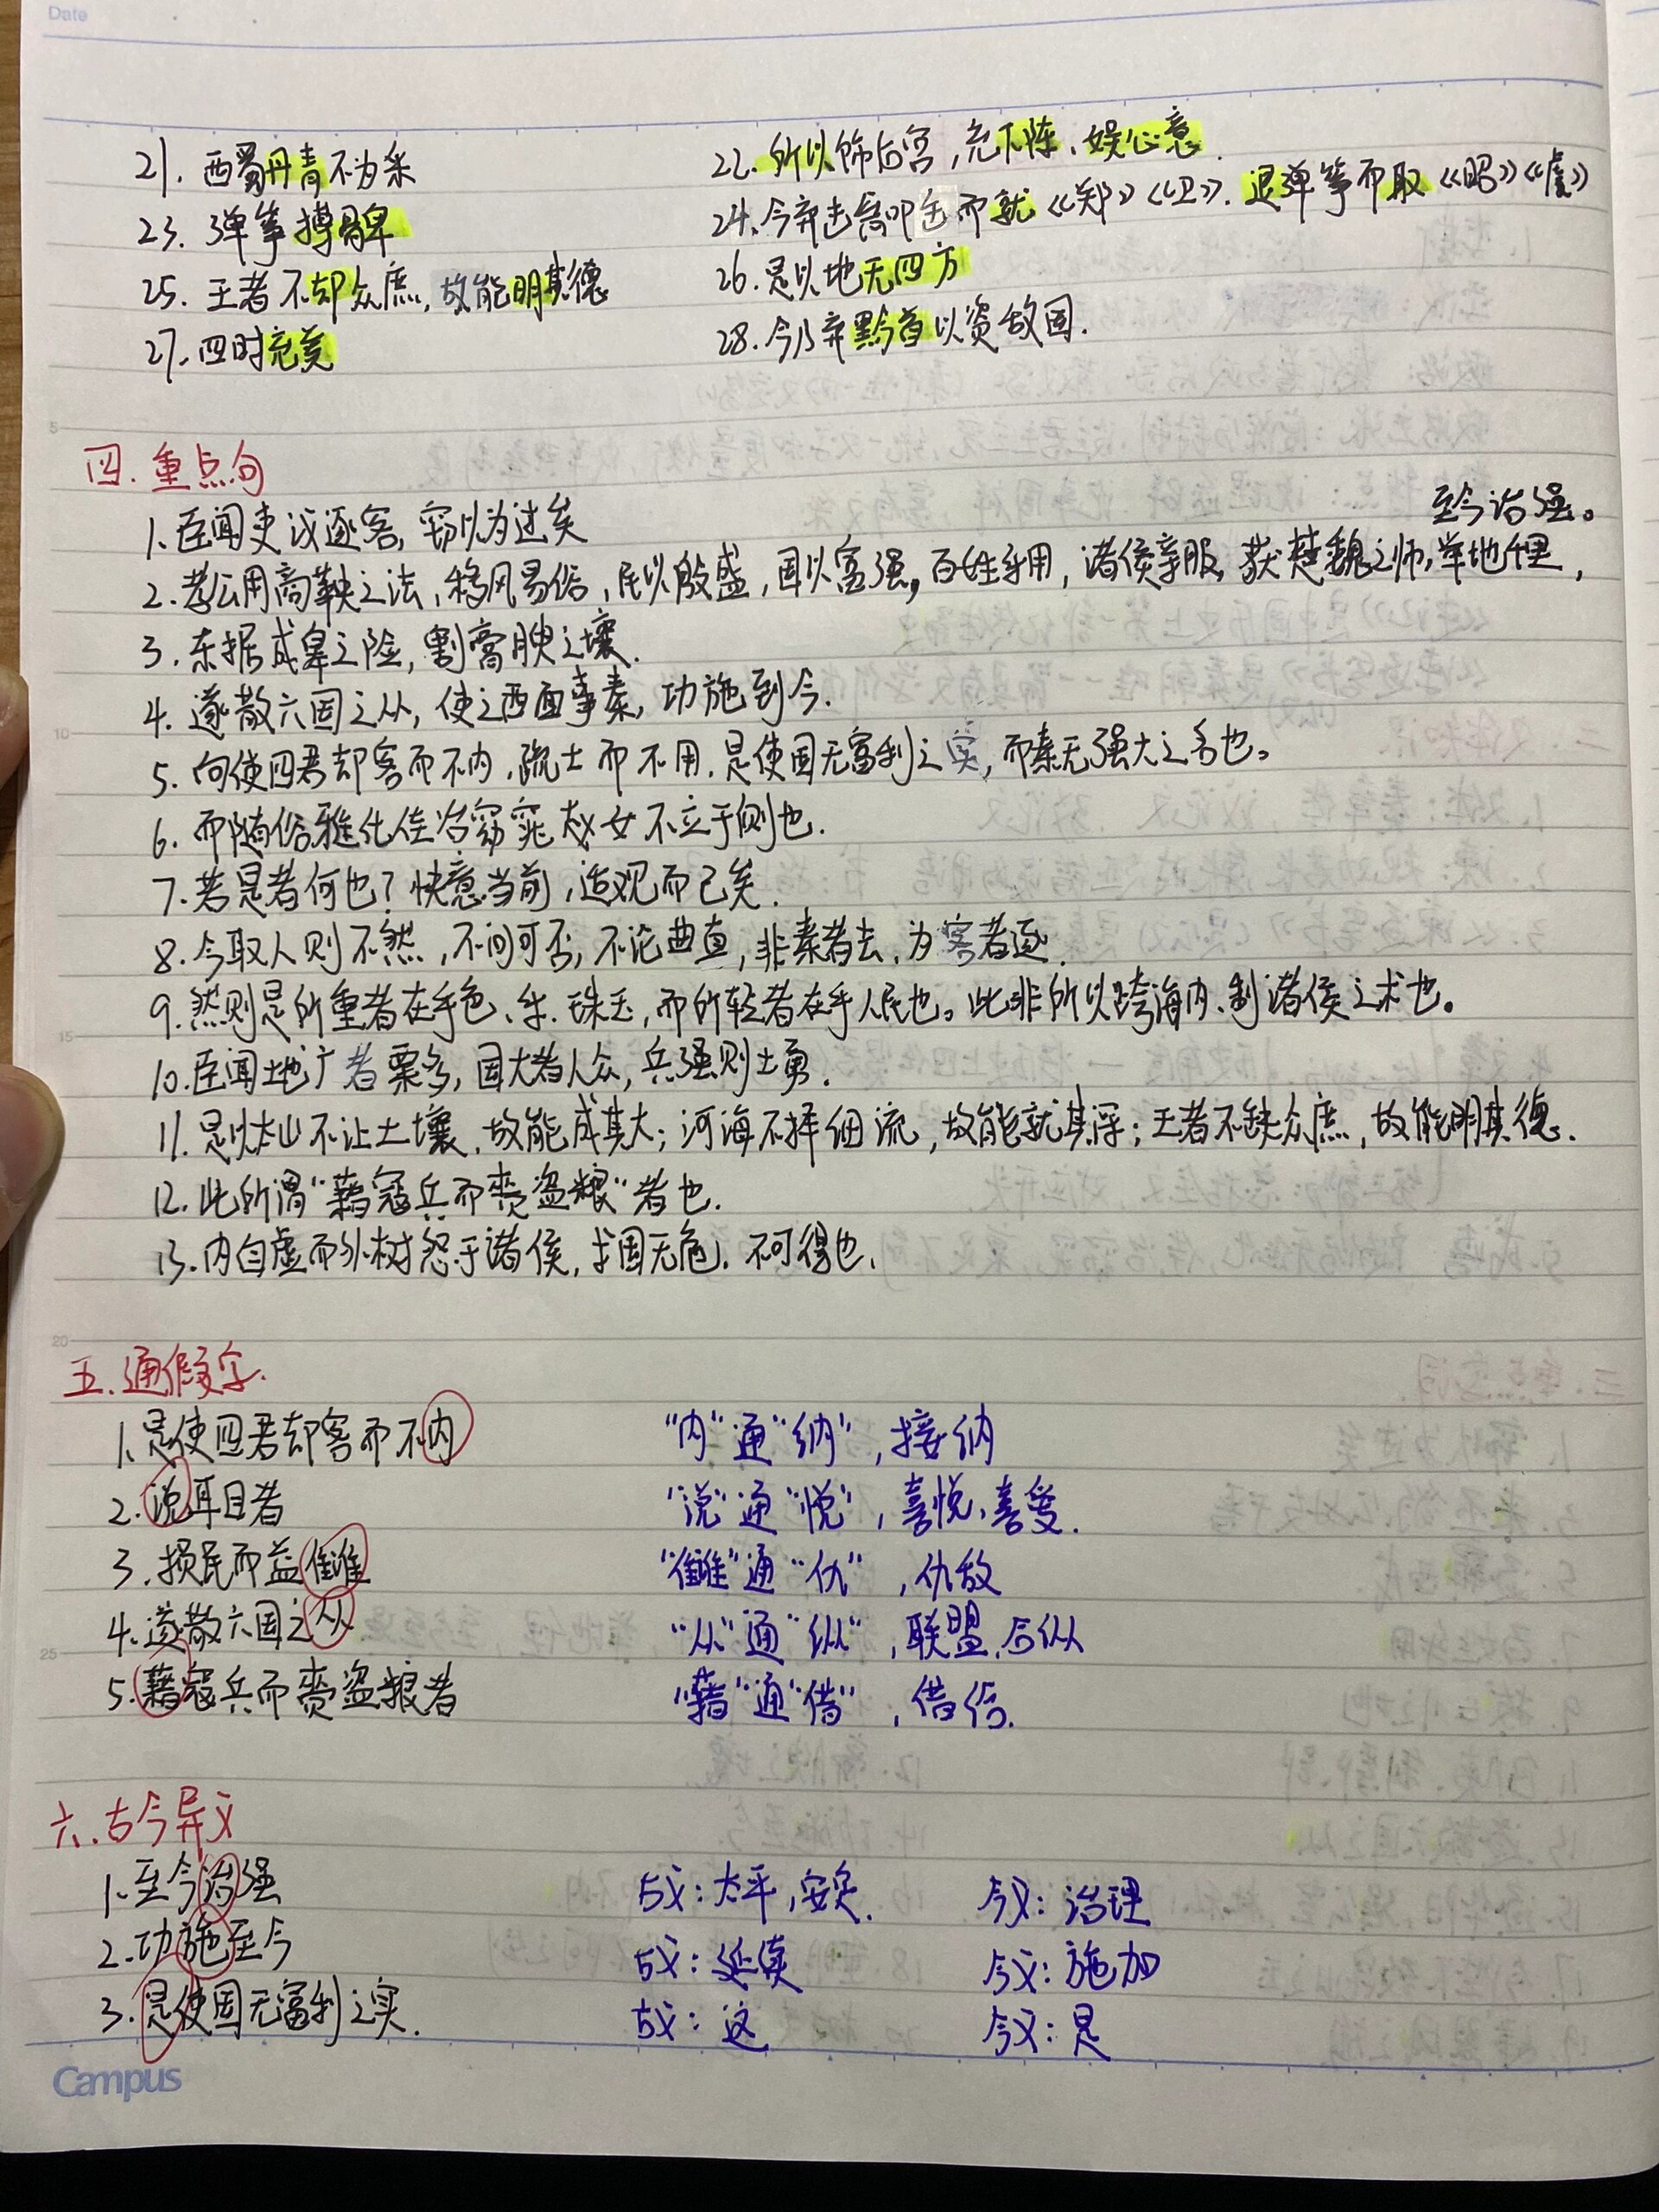 Date
21. 西蜀丹青不为采
22. 所以饰后宫,充下陈、娱心意.
23. 弹筝搏髀
24. 今弃击瓮叩缶而就《郑》《卫》. 退弹筝而取《昭》《虞》
25. 王者不却众庶, 故能明其德
26. 是以地无四方
27. 四时充美
28. 今乃弃黔首以资敌国.
四. 重点句
1. 臣闻吏议逐客, 窃以为过矣
至今治强。
2. 孝公用商鞅之法, 移风易俗, 民以殷盛, 国以富强, 百姓乐用, 诸侯亲服, 获楚魏之师, 举地千里,
3. 东据成皋之险, 割膏腴之壤.
4. 遂散六国之从, 使之西面事秦, 功施到今.
5. 向使四君却客而不内, 疏士而不用, 是使国无富利之实, 而秦无强大之名也。
6. 而随俗雅化佳冶窈窕赵女不立于侧也.
7. 若是者何也? 快意当前, 适观而已矣.
8. 今取人则不然, 不问可否, 不论曲直, 非秦者去, 为客者逐.
9. 然则是所重者在乎色、乐、珠玉, 而所轻者在乎人民也。此非所以跨海内、制诸侯之术也。
10. 臣闻地广者粟多, 国大者人众, 兵强则士勇.
11. 是以太山不让土壤, 故能成其大; 河海不择细流, 故能就其深; 王者不缺众庶, 故能明其德.
12. 此所谓“藉寇兵而赍盗粮”者也.
13. 内自虚而外树怨于诸侯, 求国无危, 不可得也.
五. 通假字.
1. 是使四君却客而不内 “内”通“纳”, 接纳
2. 说耳目者 “说”通“悦”, 喜悦, 喜爱.
3. 损民而益雠 “雠”通“仇”, 仇敌
4. 遂散六国之从 “从”通“纵”, 联盟, 合纵
5. 藉寇兵而赍盗粮者 “藉”通“借”, 借给.
六. 古今异义
1. 至今治强 古义: 太平, 安定. 今义: 治理
2. 功施至今 古义: 延续 今义: 施加
3. 是使国无富利之实. 古义: 这 今义: 是
Campus